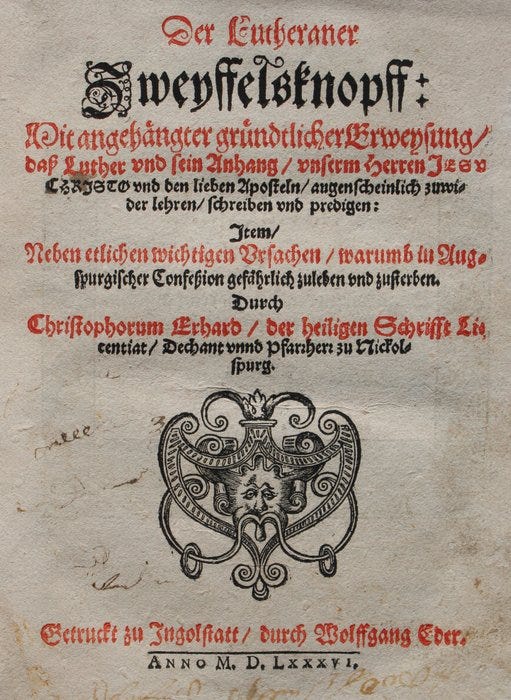 Der Lutheraner
Zweyffelsknopff:
Mit angehängter gründtlicher Erweysung/
daß Luther vnd sein Anhang / vnserm Herren JESV
CHRISTO vnd den lieben Aposteln/ augenscheinlich zuwi-
der lehren/ schreiben vnd predigen:
Item/
Neben etlichen wichtigen Vrsachen / warumb in Aug-
spurgischer Confeßion gefährlich zuleben vnd zusterben.
Durch
Christophorum Erhard / der heiligen Schrifft Li-
centiat/ Dechant vnnd Pfarrherr zu Nickol-
spurg.
Getruckt zu Ingolstatt / durch Wolffgang Eder.
ANNO M. D. LXXXVI.